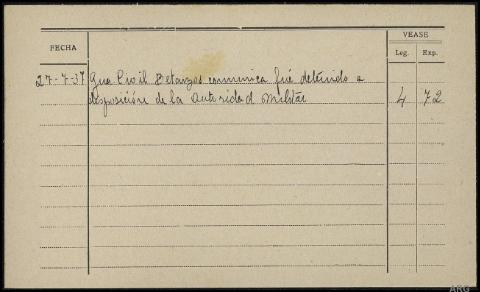 VEASE
FECHA
Leg. Exp.
27-7-37 Gua Civil Betanzos comunica fué detenido a
disposición de la autoridad militar 4 72
ARG